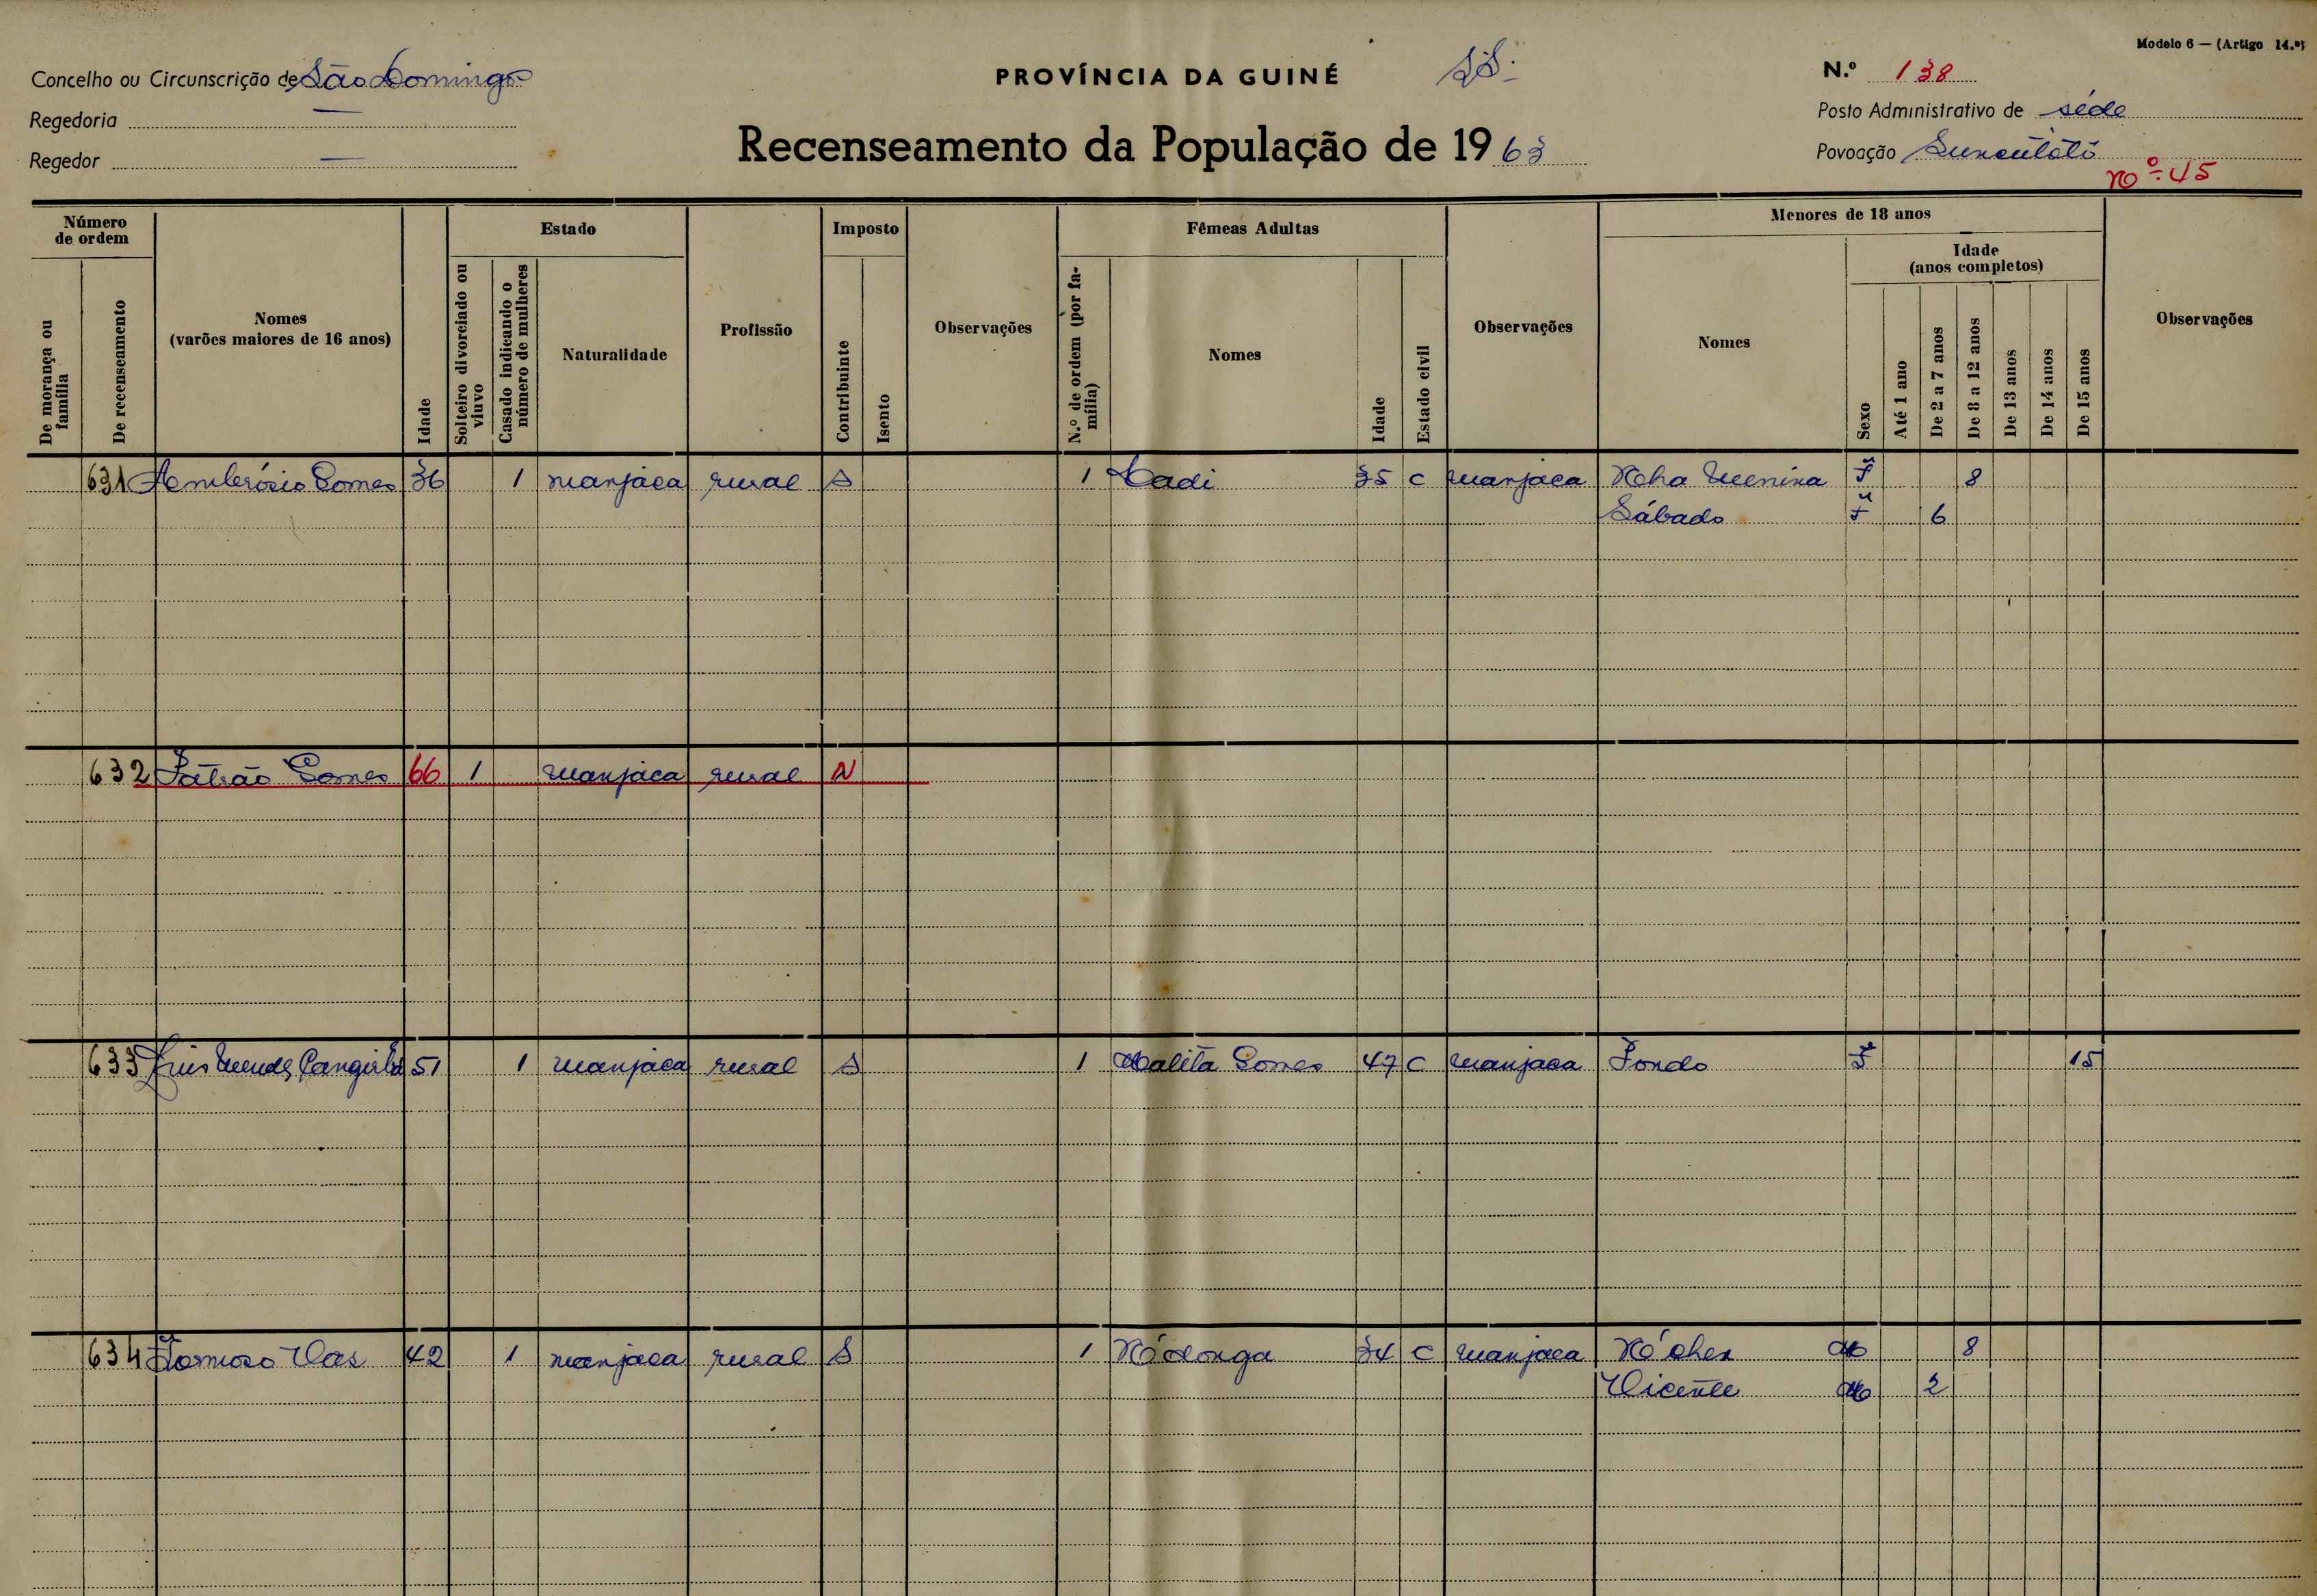 Modelo 6 — (Artigo 14.º)
Concelho ou Circunscrição de São Domingos
PROVÍNCIA DA GUINÉ
N.º 138
Regedoria —
Posto Administrativo de séde
Regedor —
Recenseamento da População de 1963
Povoação
Nº 45
Número de ordem
De morança ou família
De recenseamento
Nomes
(varões maiores de 16 anos)
Idade
Estado
Solteiro divorciado ou viuvo
Casado indicando o número de mulheres
Naturalidade
Profissão
Imposto
Contribuinte
Isento
Observações
Fêmeas Adultas
N.º de ordem (por família)
Nomes
Idade
Estado civil
Observações
Menores de 18 anos
Nomes
Sexo
Idade
(anos completos)
Até 1 ano
De 2 a 7 anos
De 8 a 12 anos
De 13 anos
De 14 anos
De 15 anos
Observações
631 Ambrósio Gomes 36 1 manjaca rural S 1 Cadi 35 C manjaca Nha Menina F 8
Sábado F 6
632 Patrão Gomes 66 1 manjaca rural N
633 Luis Mendes 51 1 manjaca rural S 1 Malita Gomes 47 C manjaca Fondo F 15
634 Formoso Vaz 42 1 manjaca rural S 1 34 C manjaca M 8
Vicente M 2